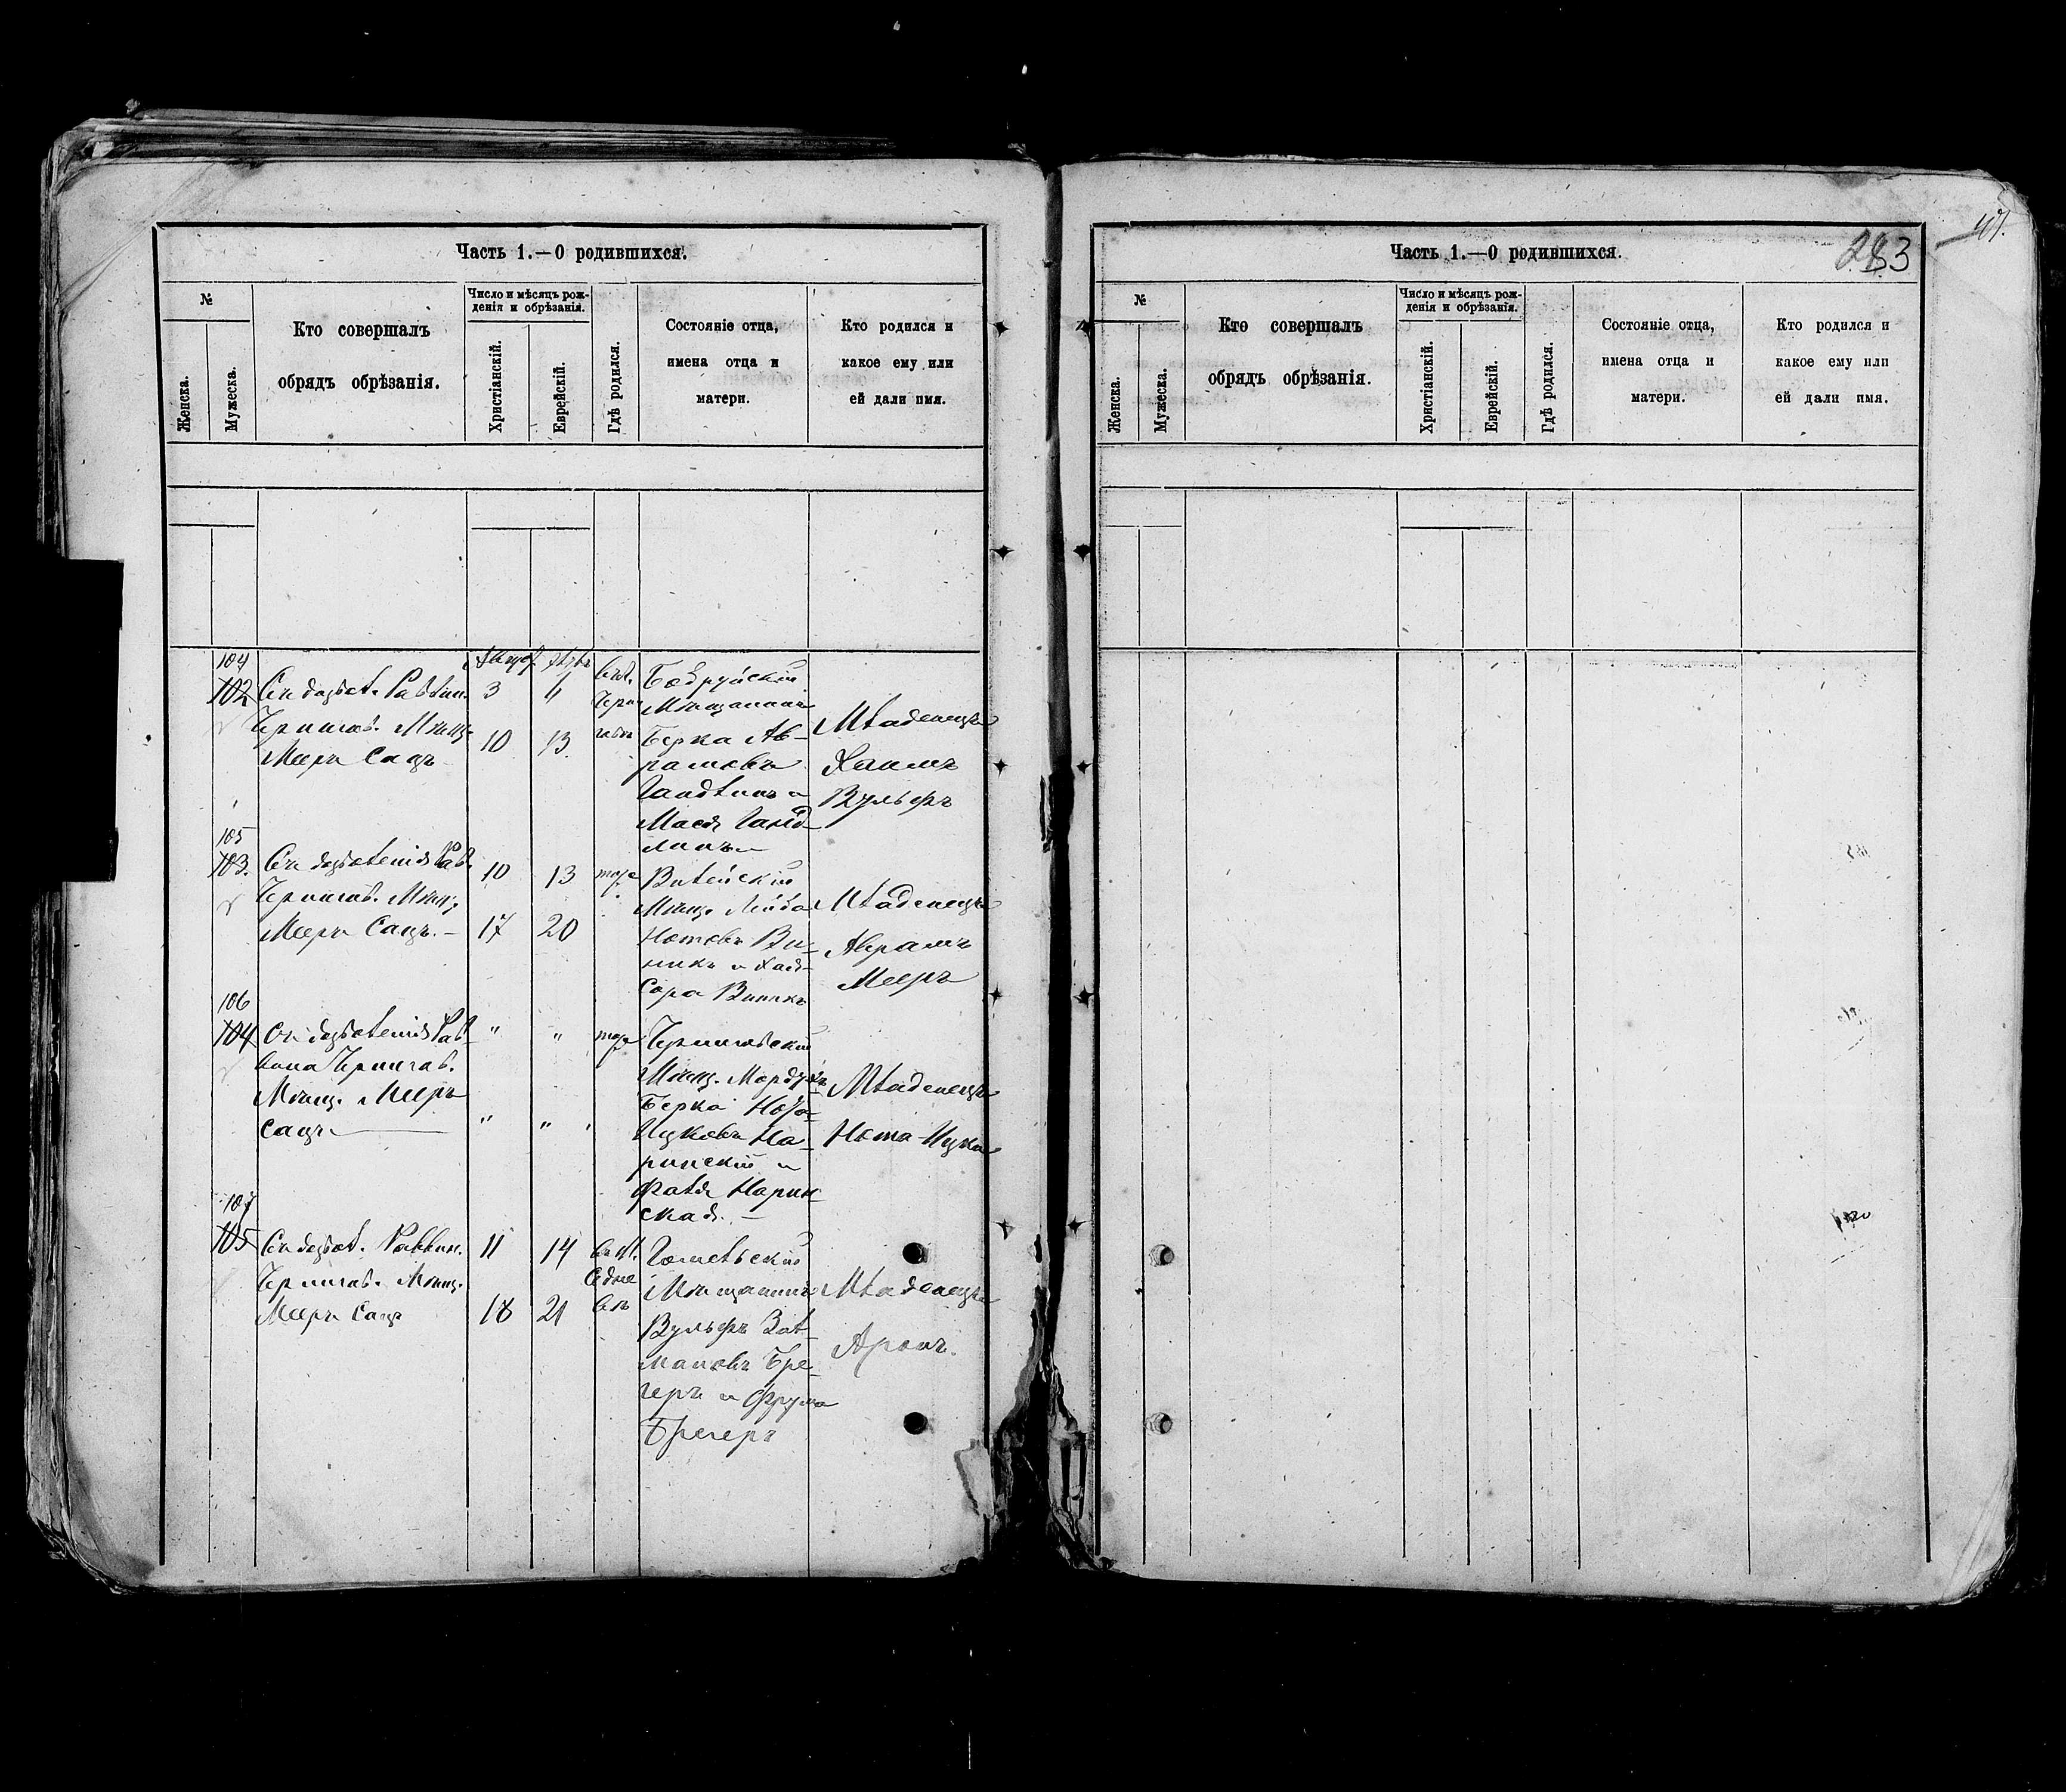 Часть 1.—О родившихся.
№
Женска.
Мужеска.
Кто совершалъ
обрядъ обрѣзанія.
Число и мѣсяцъ рож-
денія и обрѣзанія.
Христіанскій.
Еврейскій.
Гдѣ родился.
Состояніе отца,
имена отца и
матери.
Кто родился и
какое ему или
ей дали имя.
104
102
Съ дозвол. Раввин.
Чернигов. Мѣщ.
Мееръ Сацъ
3
10
13
Бобруйскій
Мѣщанинъ
Берка Ав-
рамовъ
Гандлинъ и
Мася Ганд-
линъ
Младенецъ
Хаимъ
Вульфъ
105
103.
Съ дозволенія Рав.
Чернигов. Мѣщ.
Мееръ Сацъ. —
10
17
13
20
тоже
Мѣщ. Лейба
Нотовъ Ви-
никъ и Хая-
Сора Виникъ
Младенецъ
Абрамъ
Мееръ
106
104
Съ дозволенія Рав-
вина Чернигов.
Мѣщ. Мееръ
Сацъ
"
"
"
"
тоже
Черниговскій
Мѣщ. Мордухъ
Берка
Ицковъ На-
ринскій и
Фаля Нарин-
ская. —
Младенецъ
Нота-Ицка
107
105
Съ дозвол. Раввин.
Чернигов. Мѣщ.
Мееръ Сацъ
11
18
14
21
въ м.
Седне
въ
Гомельскій
Мѣщанинъ
Вульфъ Зал-
мановъ Бре-
геръ и Фрума
Брегеръ
Младенецъ
Аронъ.
Часть 1.—О родившихся.
283
107.
№
Женска.
Мужеска.
Кто совершалъ
обрядъ обрѣзанія.
Число и мѣсяцъ рож-
денія и обрѣзанія.
Христіанскій.
Еврейскій.
Гдѣ родился.
Состояніе отца,
имена отца и
матери.
Кто родился и
какое ему или
ей дали имя.